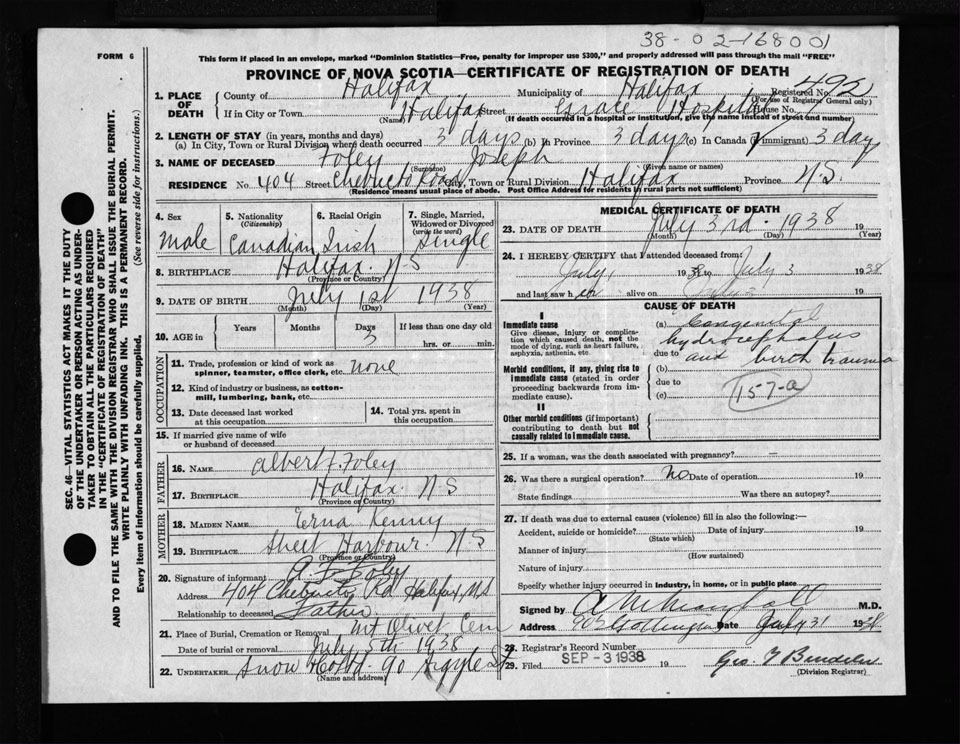 38-02-168001
FORM 6
This form if placed in an envelope, marked "Dominion Statistics—Free, penalty for improper use $300," and properly addressed will pass through the mail "FREE"
PROVINCE OF NOVA SCOTIA—CERTIFICATE OF REGISTRATION OF DEATH
1. PLACE OF DEATH
County of Halifax Municipality of Halifax Registered No. 492
(For use of Registrar General only)
If in City or Town Halifax Street Grace Hospital House No.
(Name) (If death occurred in a hospital or institution, give the name instead of street and number)
2. LENGTH OF STAY (in years, months and days)
(a) In City, Town or Rural Division where death occurred 3 days (b) In Province 3 days (c) In Canada (if immigrant) 3 days
3. NAME OF DECEASED Foley Joseph
(Surname) (Given name or names)
RESIDENCE No. 404 Street Chebucto Road City, Town or Rural Division Halifax Province N.S.
(Residence means usual place of abode. Post Office Address for residents in rural parts not sufficient)
4. Sex Male
5. Nationality (Citizenship) Canadian
6. Racial Origin Irish
7. Single, Married, Widowed or Divorced (write the word) Single
8. BIRTHPLACE Halifax. N S
(Province or Country)
9. DATE OF BIRTH July 1st 1938
(Month) (Day) (Year)
10. AGE in Years Months Days 3 If less than one day old
hrs. or min.
OCCUPATION
11. Trade, profession or kind of work as spinner, teamster, office clerk, etc. none
12. Kind of industry or business, as cotton-mill, lumbering, bank, etc.
13. Date deceased last worked at this occupation
14. Total yrs. spent in this occupation
15. If married give name of wife or husband of deceased
FATHER
16. NAME Albert F. Foley
17. BIRTHPLACE Halifax N S
(Province or Country)
MOTHER
18. MAIDEN NAME Erna Kenny
19. BIRTHPLACE Sheet Harbour. N S
(Province or Country)
20. Signature of informant A F Foley
Address 404 Chebucto Rd Halifax, N S
Relationship to deceased Father
21. Place of Burial, Cremation or Removal Mt Olivet Cem
Date of burial or removal July 5th 1938
22. UNDERTAKER Snow 90 Argyle St
(Name and address)
MEDICAL CERTIFICATE OF DEATH
23. DATE OF DEATH July 3rd. 1938 19
(Month) (Day) (Year)
24. I HEREBY CERTIFY that I attended deceased from:
July 1 1938 to July 3 1938
and last saw h im alive on July 3 19
CAUSE OF DEATH
I
Immediate cause
Give disease, injury or complication which caused death, not the mode of dying, such as heart failure, asphyxia, asthenia, etc.
Morbid conditions, if any, giving rise to immediate cause (stated in order proceeding backwards from immediate cause).
II
Other morbid conditions (if important) contributing to death but not causally related to immediate cause.
(a) Congenital
hydrocephalus
due to and birth trauma
(b)
due to
(c)
157-a
25. If a woman, was the death associated with pregnancy? —
26. Was there a surgical operation? No Date of operation 19
State findings Was there an autopsy?
27. If death was due to external causes (violence) fill in also the following:—
Accident, suicide or homicide? Date of injury 19
(State which)
Manner of injury
(How sustained)
Nature of injury
Specify whether injury occurred in industry, in home, or in public place
Signed by M.D.
Address Date July 31 1938
28. Registrar's Record Number
29. Filed SEP -3 1938 19
(Division Registrar)
SEC. 46—VITAL STATISTICS ACT MAKES IT THE DUTY
OF THE UNDERTAKER OR PERSON ACTING AS UNDER-
TAKER TO OBTAIN ALL THE PARTICULARS REQUIRED
IN THE "CERTIFICATE OF REGISTRATION OF DEATH"
AND TO FILE THE SAME WITH THE DIVISION REGISTRAR WHO SHALL ISSUE THE BURIAL PERMIT.
WRITE PLAINLY WITH UNFADING INK. THIS IS A PERMANENT RECORD.
Every item of information should be carefully supplied. (See reverse side for instructions.)